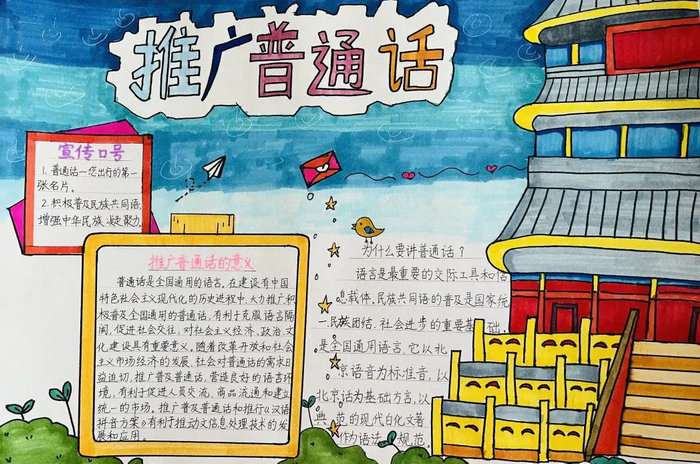 推广普通话
宣传口号
1. 普通话—您出行的第一
张名片。
2. 积极普及民族共同语,
增强中华民族凝聚力
推广普通话的意义
普通话是全国通用的语言,在建设有中国
特色社会主义现代化的历史进程中,大力推广积
极普及全国通用的普通话,有利于克服语言隔
阂,促进社会交往,对社会主义经济、政治、文
化建设具有重要意义。随着改革开放和社会
主义市场经济的发展,社会对普通话的需求日
益迫切,推广普及普通话,营造良好的语言环
境,有利于促进人员交流,商品流通和建立
统一的市场。推广普及普通话和推行《汉语
拼音方案》有利于推动文信息处理技术的发
展和应用。
为什么要讲普通话?
语言是最重要的交际工具和信
息载体,民族共同语的普及是国家统
一,民族团结,社会进步的重要基础,
是全国通用语言,它以北
京语音为标准音,以
北京话为基础方言,以
典范的现代白化文著
作为语法规范